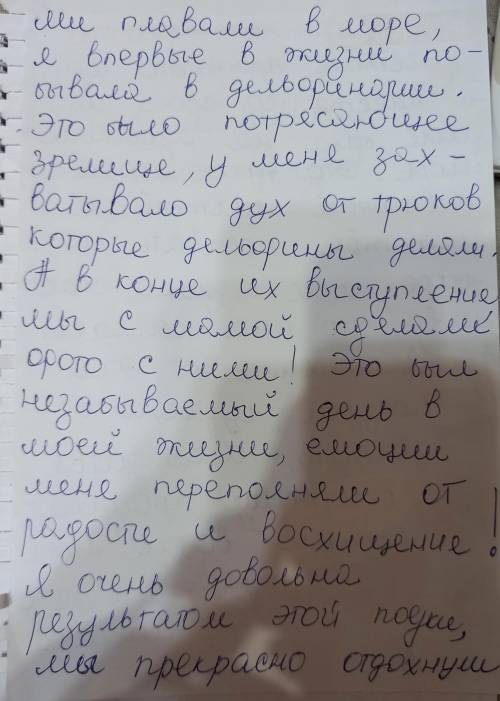 ми плавали в море,
я впервые в жизни по-
бывала в дельфинарии.
Это было потресающее
зрелище, у меня зах-
ватывало дух от трюков
которые дельфины делали.
А в конце их выступление
мы с мамой сделали
фото с ними! Это был
незабываемый день в
моей жизни, емоции
меня переполняли от
радости и восхищение!
Я очень довольна
результатом этой
мы прекрасно отдохнули